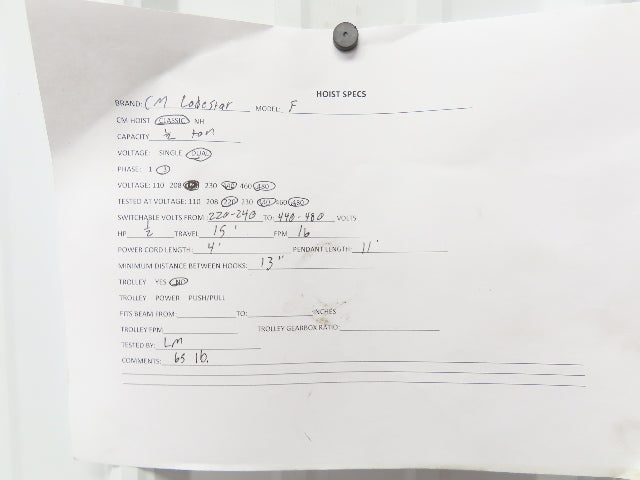 HOIST SPECS
BRAND: CM Lodestar MODEL: F
CM HOIST CLASSIC NH
CAPACITY ½ ton
VOLTAGE: SINGLE DUAL
PHASE: 1 3
VOLTAGE: 110 208 230 460 480
TESTED AT VOLTAGE: 110 208 220 230 440 460 480
SWITCHABLE VOLTS FROM: 220-240 TO: 440-480 VOLTS
HP ½ TRAVEL 15' FPM 16
POWER CORD LENGTH: 4' PENDANT LENGTH: 11'
MINIMUM DISTANCE BETWEEN HOOKS: 13"
TROLLEY YES NO
TROLLEY POWER PUSH/PULL
FITS BEAM FROM: TO: INCHES
TROLLEY FPM TROLLEY GEARBOX RATIO:
TESTED BY: LM
COMMENTS: 65 lb.